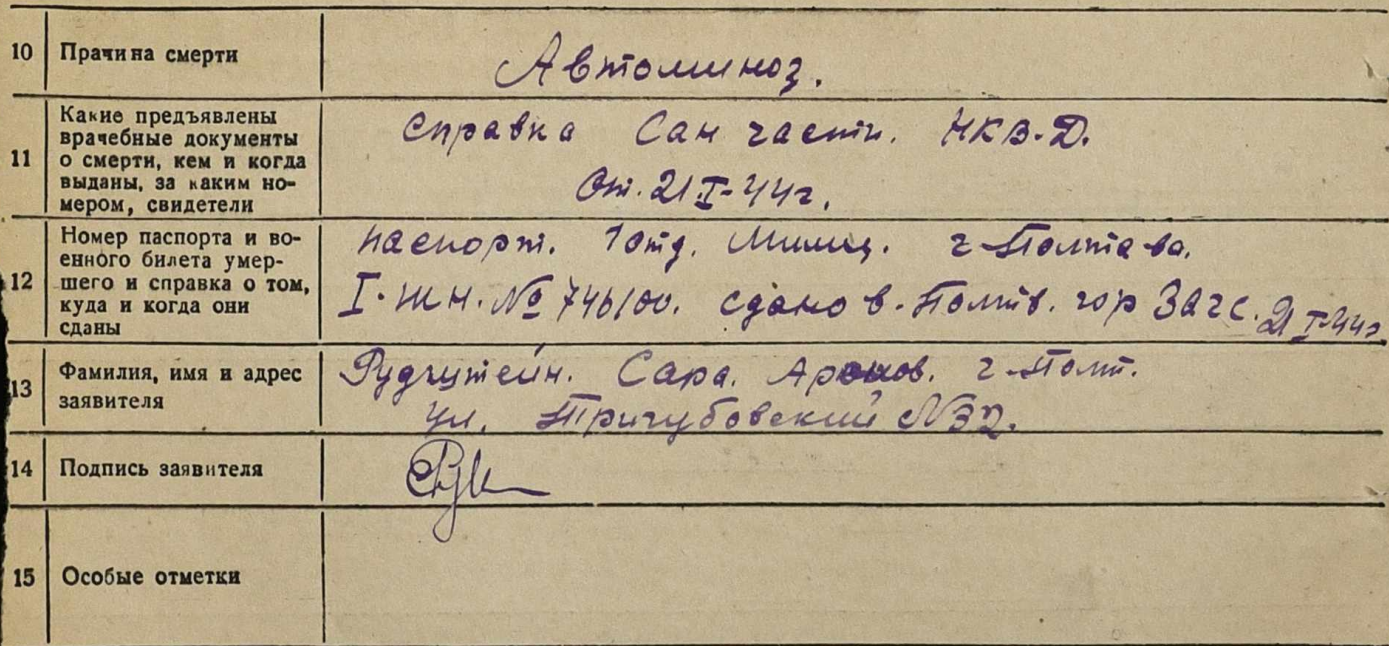 10 Прачина смерти
Автоминоз.
11 Какие предъявлены
врачебные документы
о смерти, кем и когда
выданы, за каким но-
мером, свидетели
Справка Сан части. НКВ-Д.
От. 21 I-44 г.
12 Номер паспорта и во-
енного билета умер-
шего и справка о том,
куда и когда они
сданы
паспорт. 1 отд. Милиц. г. Полтава.
I-ЖН. № 746100. сдано в. Полтв. гор ЗАГС. 21 I-44 г
13 Фамилия, имя и адрес
заявителя
Сара. г. Полт.
ул. Тричубовский №32.
14 Подпись заявителя
15 Особые отметки